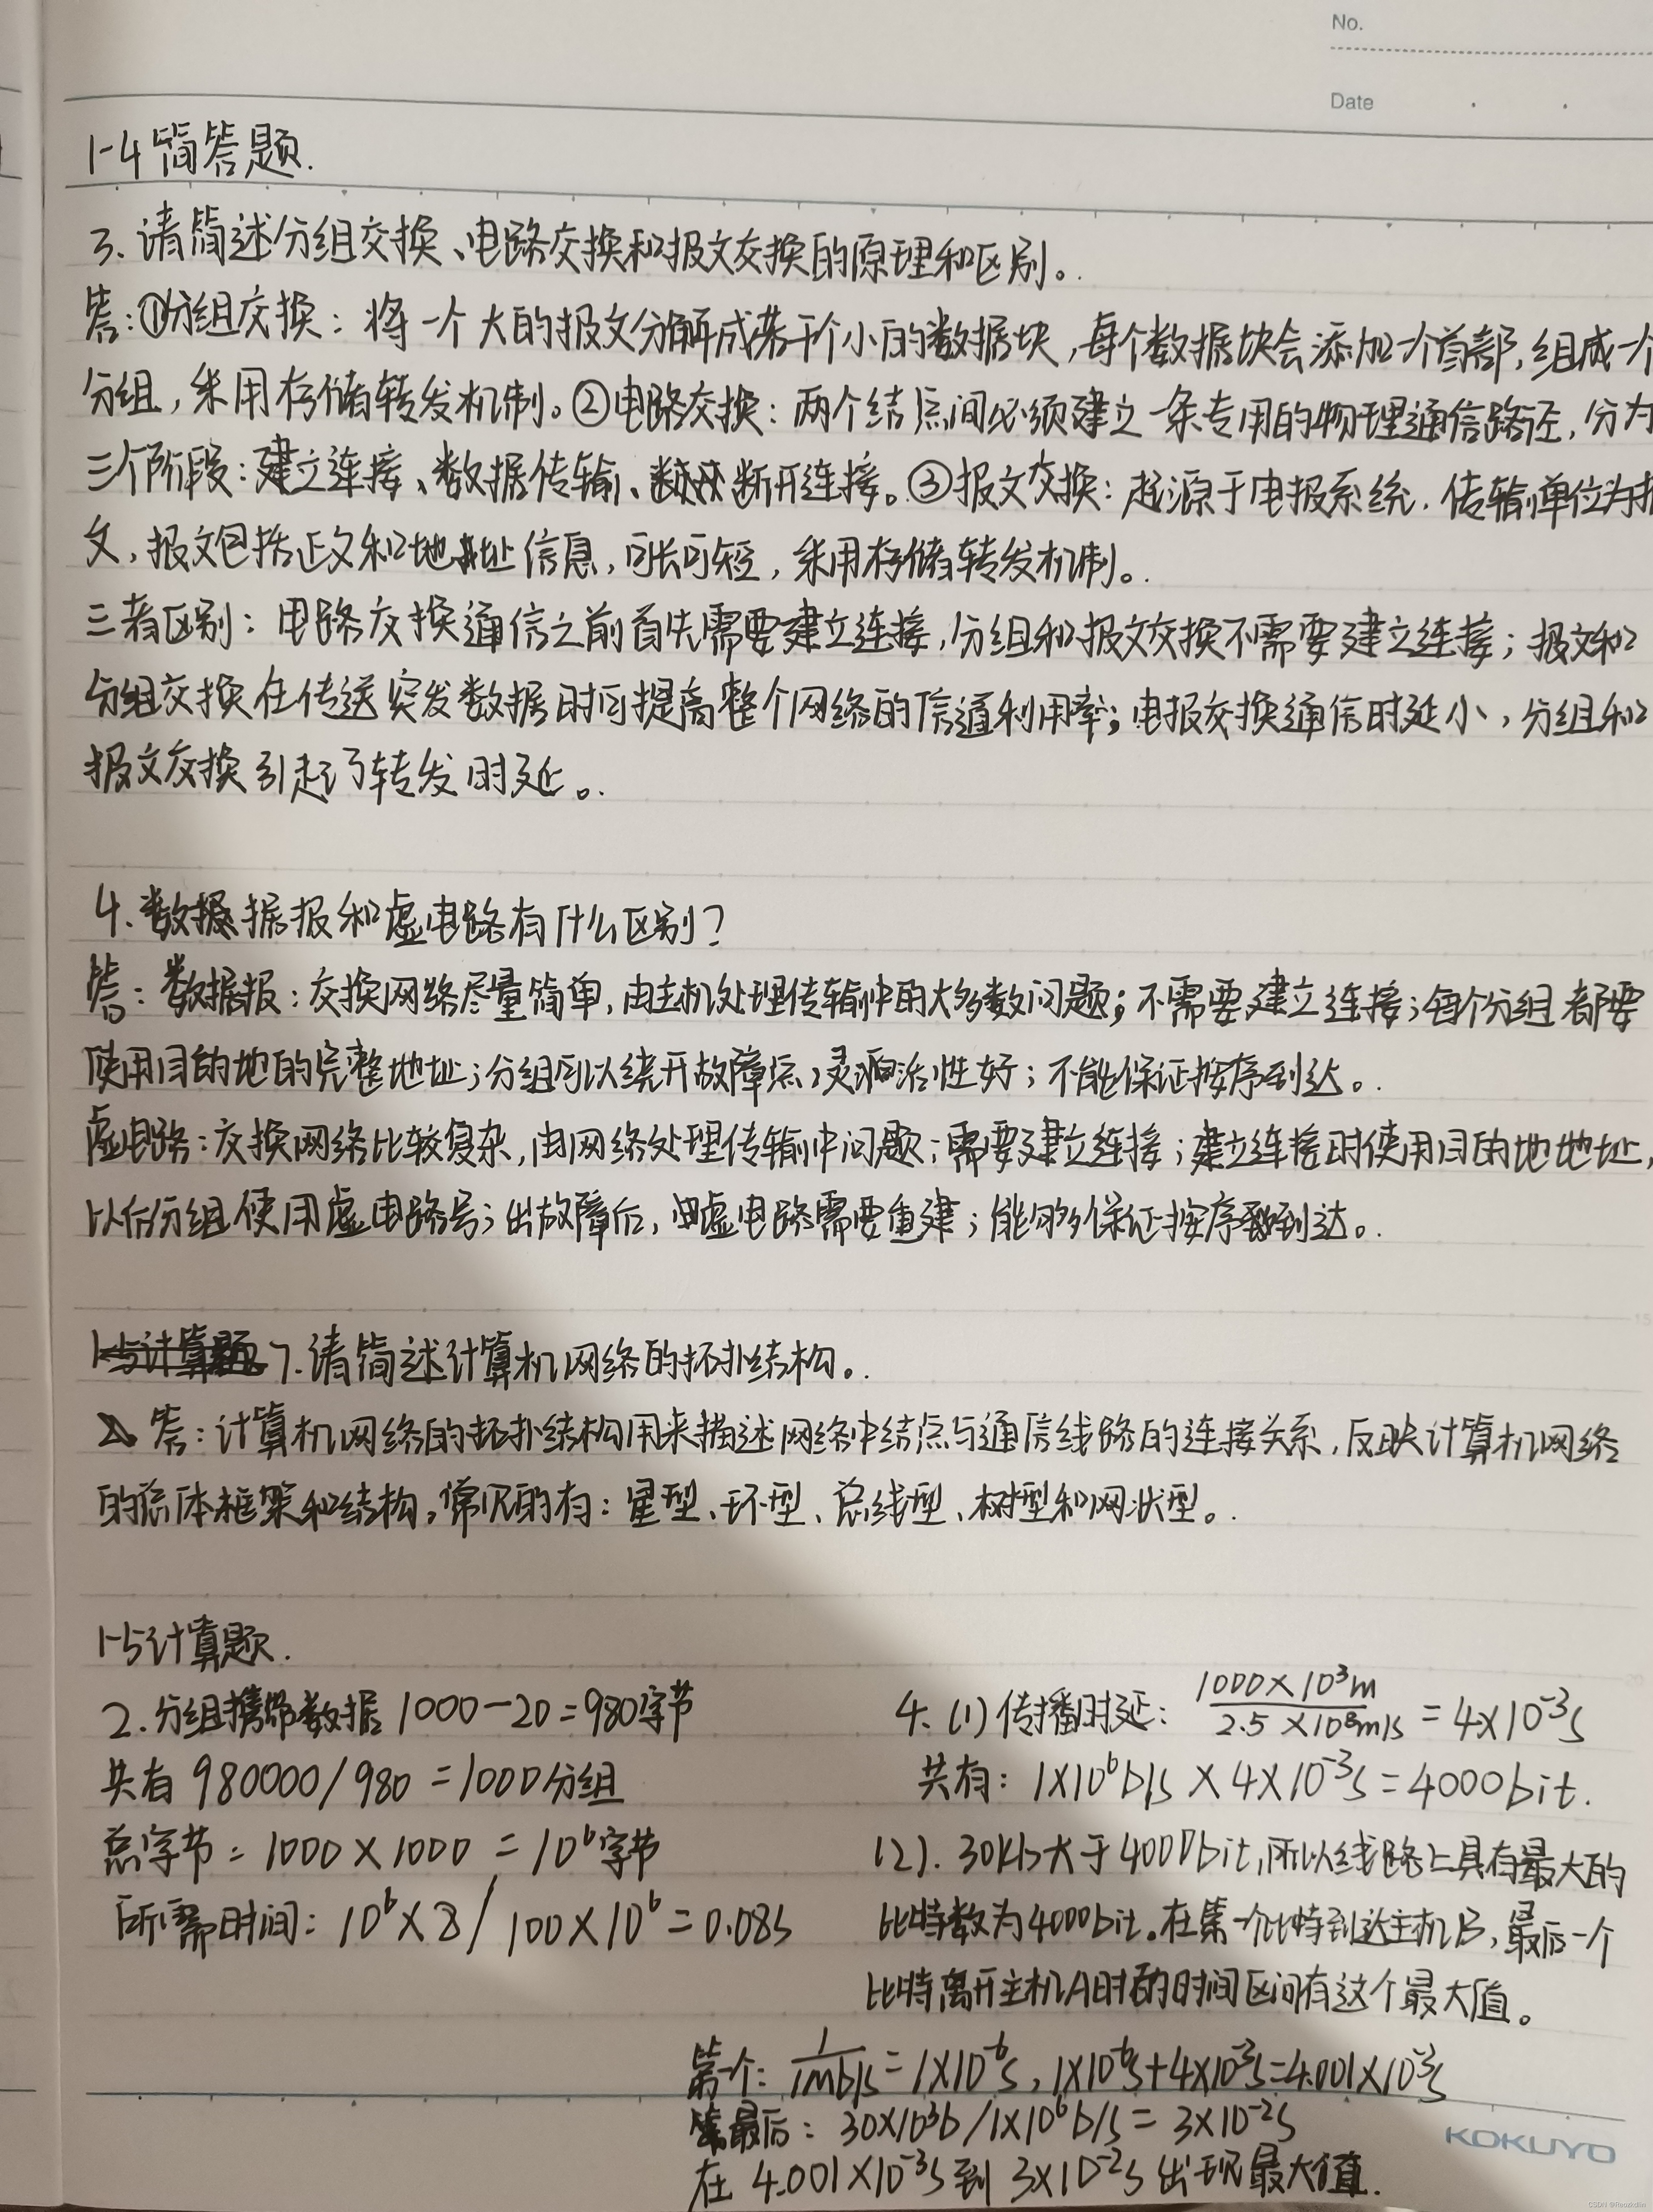 No.
Date
1-4 简答题.
3. 请简述分组交换、电路交换和报文交换的原理和区别。
答:①分组交换: 将一个大的报文分解成若干个小的数据块,每个数据块会添加一个首部,组成一个
分组,采用存储转发机制。②电路交换: 两个结点间必须建立一条专用的物理通信路径,分为
三个阶段:建立连接、数据传输、断开连接。③报文交换: 起源于电报系统.传输单位为报
文,报文包括正文和地址信息,可长可短,采用存储转发机制。
三者区别: 电路交换通信之前首先需要建立连接,分组和报文交换不需要建立连接; 报文和
分组交换在传送突发数据时可提高整个网络的信道利用率; 电报交换通信时延小,分组和
报文交换引起了转发时延。
4. 数据报和虚电路有什么区别?
答: 数据报: 交换网络尽量简单,由主机处理传输中的大多数问题; 不需要建立连接;每个分组都要
使用目的地的完整地址;分组可以绕开故障点,灵活性好; 不能保证按序到达。
虚电路:交换网络比较复杂,由网络处理传输中问题;需要建立连接;建立连接时使用目的地地址,
以后分组使用虚电路号;出故障后,虚电路需要重建;能够保证按序到达。
7. 请简述计算机网络的拓扑结构。
答: 计算机网络的拓扑结构用来描述网络中结点与通信线路的连接关系,反映计算机网络
的总体框架和结构。常见的有: 星型、环型、总线型、树型和网状型。
1-5 计算题.
2. 分组携带数据 1000-20=980字节
共有 980000/980 =1000分组
总字节= 1000×1000 = 10⁶字节
所需时间: 10⁶×8/100×10⁶=0.08s
4. (1) 传播时延: 1000×10³m / 2.5×10⁸m/s = 4×10⁻³s
共有: 1×10⁶b/s × 4×10⁻³s=4000bit.
(2). 30kb大于4000bit,所以线路上具有最大的
比特数为4000bit。在第一个比特到达主机B,最后一个
比特离开主机A时的时间区间有这个最大值。
第一个: 1/1mb/s=1×10⁻⁶s, 1×10⁻⁶s+4×10⁻³s=4.001×10⁻³s
最后: 30×10³b/1×10⁶b/s= 3×10⁻²s
在 4.001×10⁻³s到 3×10⁻²s 出现最大值.
KOKUYO